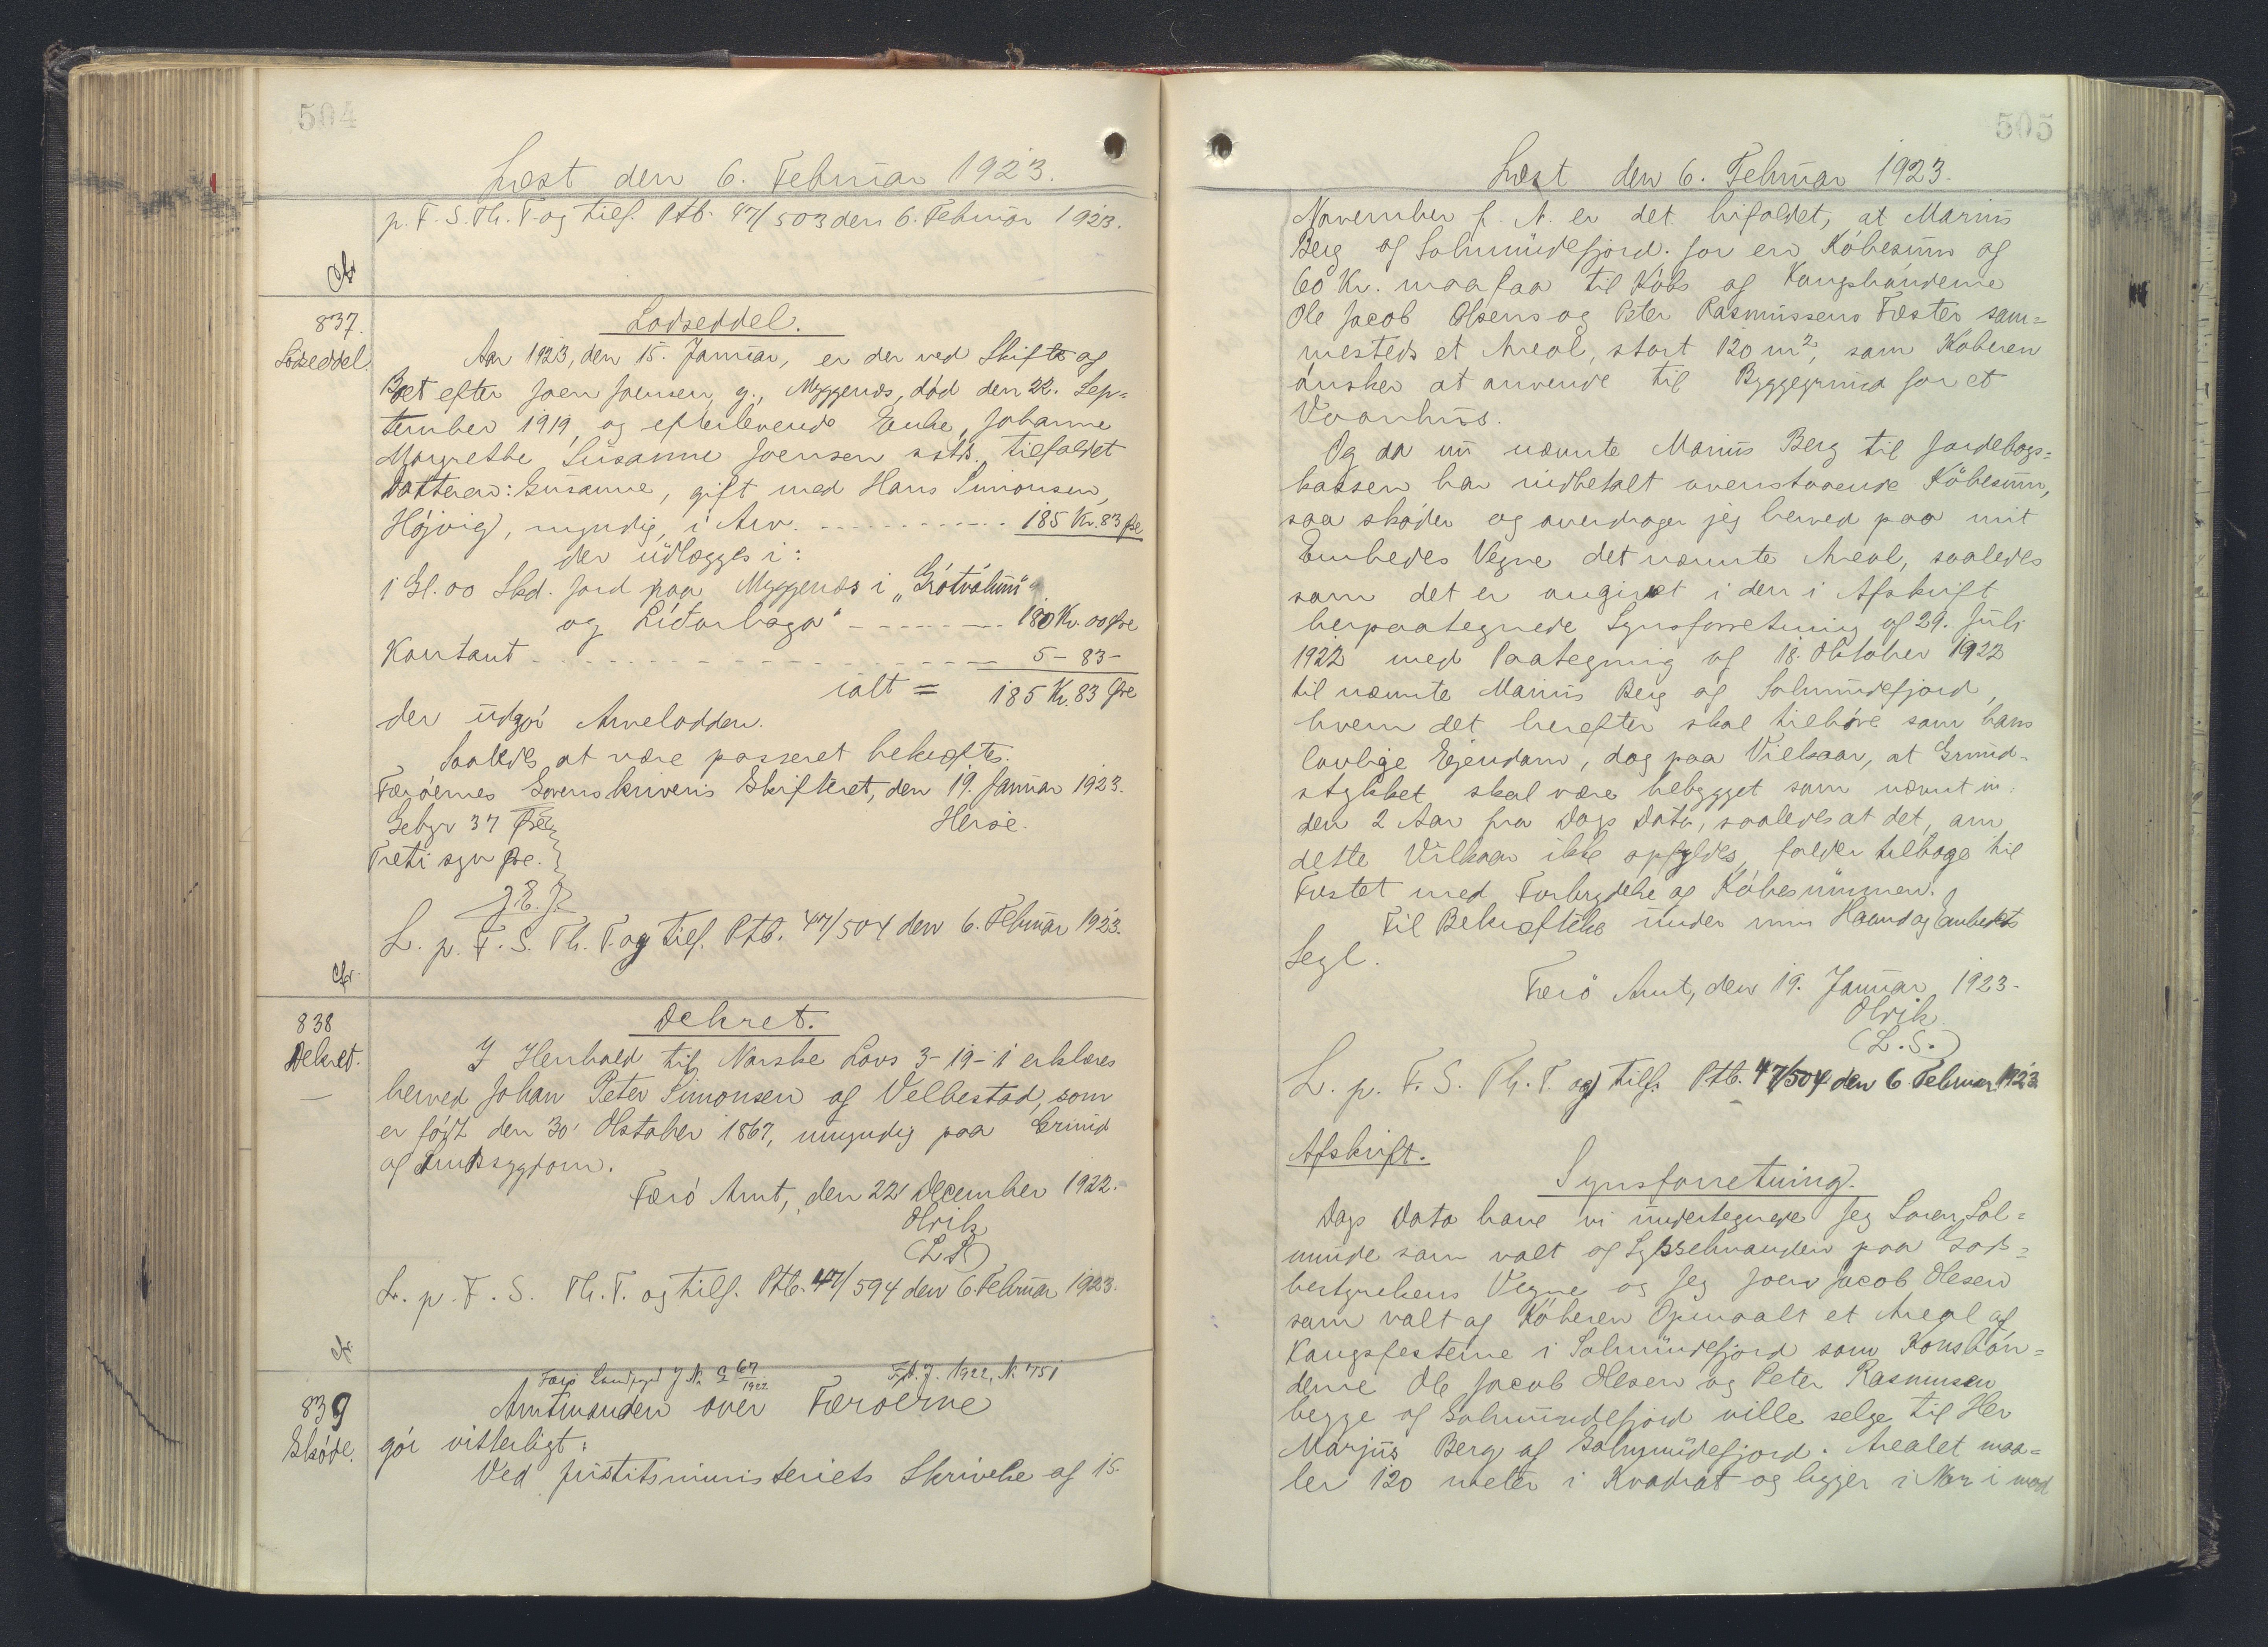 504
Læst den 6. Februar 1923.
p. F. S. Th. T. og tilf. Ptb. 47/503 den 6. Februar 1923.
Cfr
837.
Lodseddel.
Lodseddel.
Aar 1923, den 15. Januar, er der ved Skifte og
Boet efter Joen Joensen, g., Myggenæs, død den 22. Sep=
tember 1919, og efterlevende Enke, Johanne
Margrethe Susanne Joensen sstds., tilfaldet
Datteren: Susanne, gift med Hans Simonsen,
Højvig, myndig, i Arv. 185 Kr. 83 Øre
der udlægges i:
1 Gl. 00 Skd. Jord paa Myggenæs i „Grótvólum"
og Lídarhaga" 180 Kr. 00 Øre
Kontant 5 - 83 -
ialt = 185 Kr. 83 Øre
der udgør Arvelodden.
Saaledes at være passeret bekræftes.
Færøernes Sorenskriveris Skifteret, den 19. Januar 1923.
Gebyr 37 Øre
Herøe.
Treti syv Øre.
L. p. F. S. Th. T. og tilf. Ptb. 47/504 den 6. Februar 1923.
Cfr.
838
Dekret.
Dekret.
I Henhold til Norske Lovs 3-19-1 erklæres
herved Johan Peter Simonsen af Velbestad, som
er født den 30' Oktober 1867, umyndig paa Grund
af Sindssygdom.
Færø Amt, den 22' December 1922.
Olrik
(L.S.)
L. p. F. S. Th. T. og tilf. Ptb. 47/594 den 6. Februar 1923.
Cfr.
Færø 67/1922 1922, N. 751
839
Skøde.
Amtmanden over Færøerne
gør vitterligt:
Ved Justitsministeriets Skrivelse af 15.
505
Læst den 6. Februar 1923.
November f. A. er det bifaldet, at Marius
Berg af Solmundefjord for en Købesum af
60 Kr. maa faa til Købs af Kongsbønderne
Ole Jacob Olsens og Peter Rasmussens Fæster sam=
mesteds et Areal, stort 120 m², som Køberen
ønsker at anvende til Byggegrund for et
Vaanhus.
Og da nu nævnte Marius Berg til Jordebogs=
kassen har indbetalt ovenstaaende Købesum,
saa skøder og overdrager jeg herved paa mit
Embedes Vegne det nævnte Areal, saaledes
som det er angivet i den i Afskrift
herpaategnede Synsforretning af 29. Juli
1922 med Paategning af 18. Oktober 1922
til nævnte Marius Berg af Solmundefjord,
hvem det herefter skal tilhøre som hans
lovlige Ejendom, dog paa Vilkaar, at Grund-
stykket skal være bebygget som nævnt in=
den 2 Aar fra Dags Dato, saaledes at det, om
dette Vilkaar ikke opfyldes, falder tilbage til
Fæstet med Forbrydelse af Købesummen.
Til Bekræftelse under min Haand og Embeds
Segl.
Færø Amt, den 19. Januar 1923.
Olrik
(L.S.)
L. p. F. S. Th. T. og tilf. Ptb. 47/504 den 6. Februar 1923
Afskrift.
Synsforretning.
Dags Dato have vi undertegnede Jeg Soren Sol=
munde som valt af Sysselmanden paa Gods=
bestyrelsens Vegne og Jeg Joen Jacob Olesen
som valt af Køberen Opmaalt et Areal af
Kongsfesterne i Solmundefjord som Konsbøn=
derne Ole Jacob Olesen og Peter Rasmusen
begge af Solmundefjord ville selge til Her
Marjus Berg af Solmundefjord. Arealet maa=
ler 120 meter i Kvadrat og ligger i Nor i mod